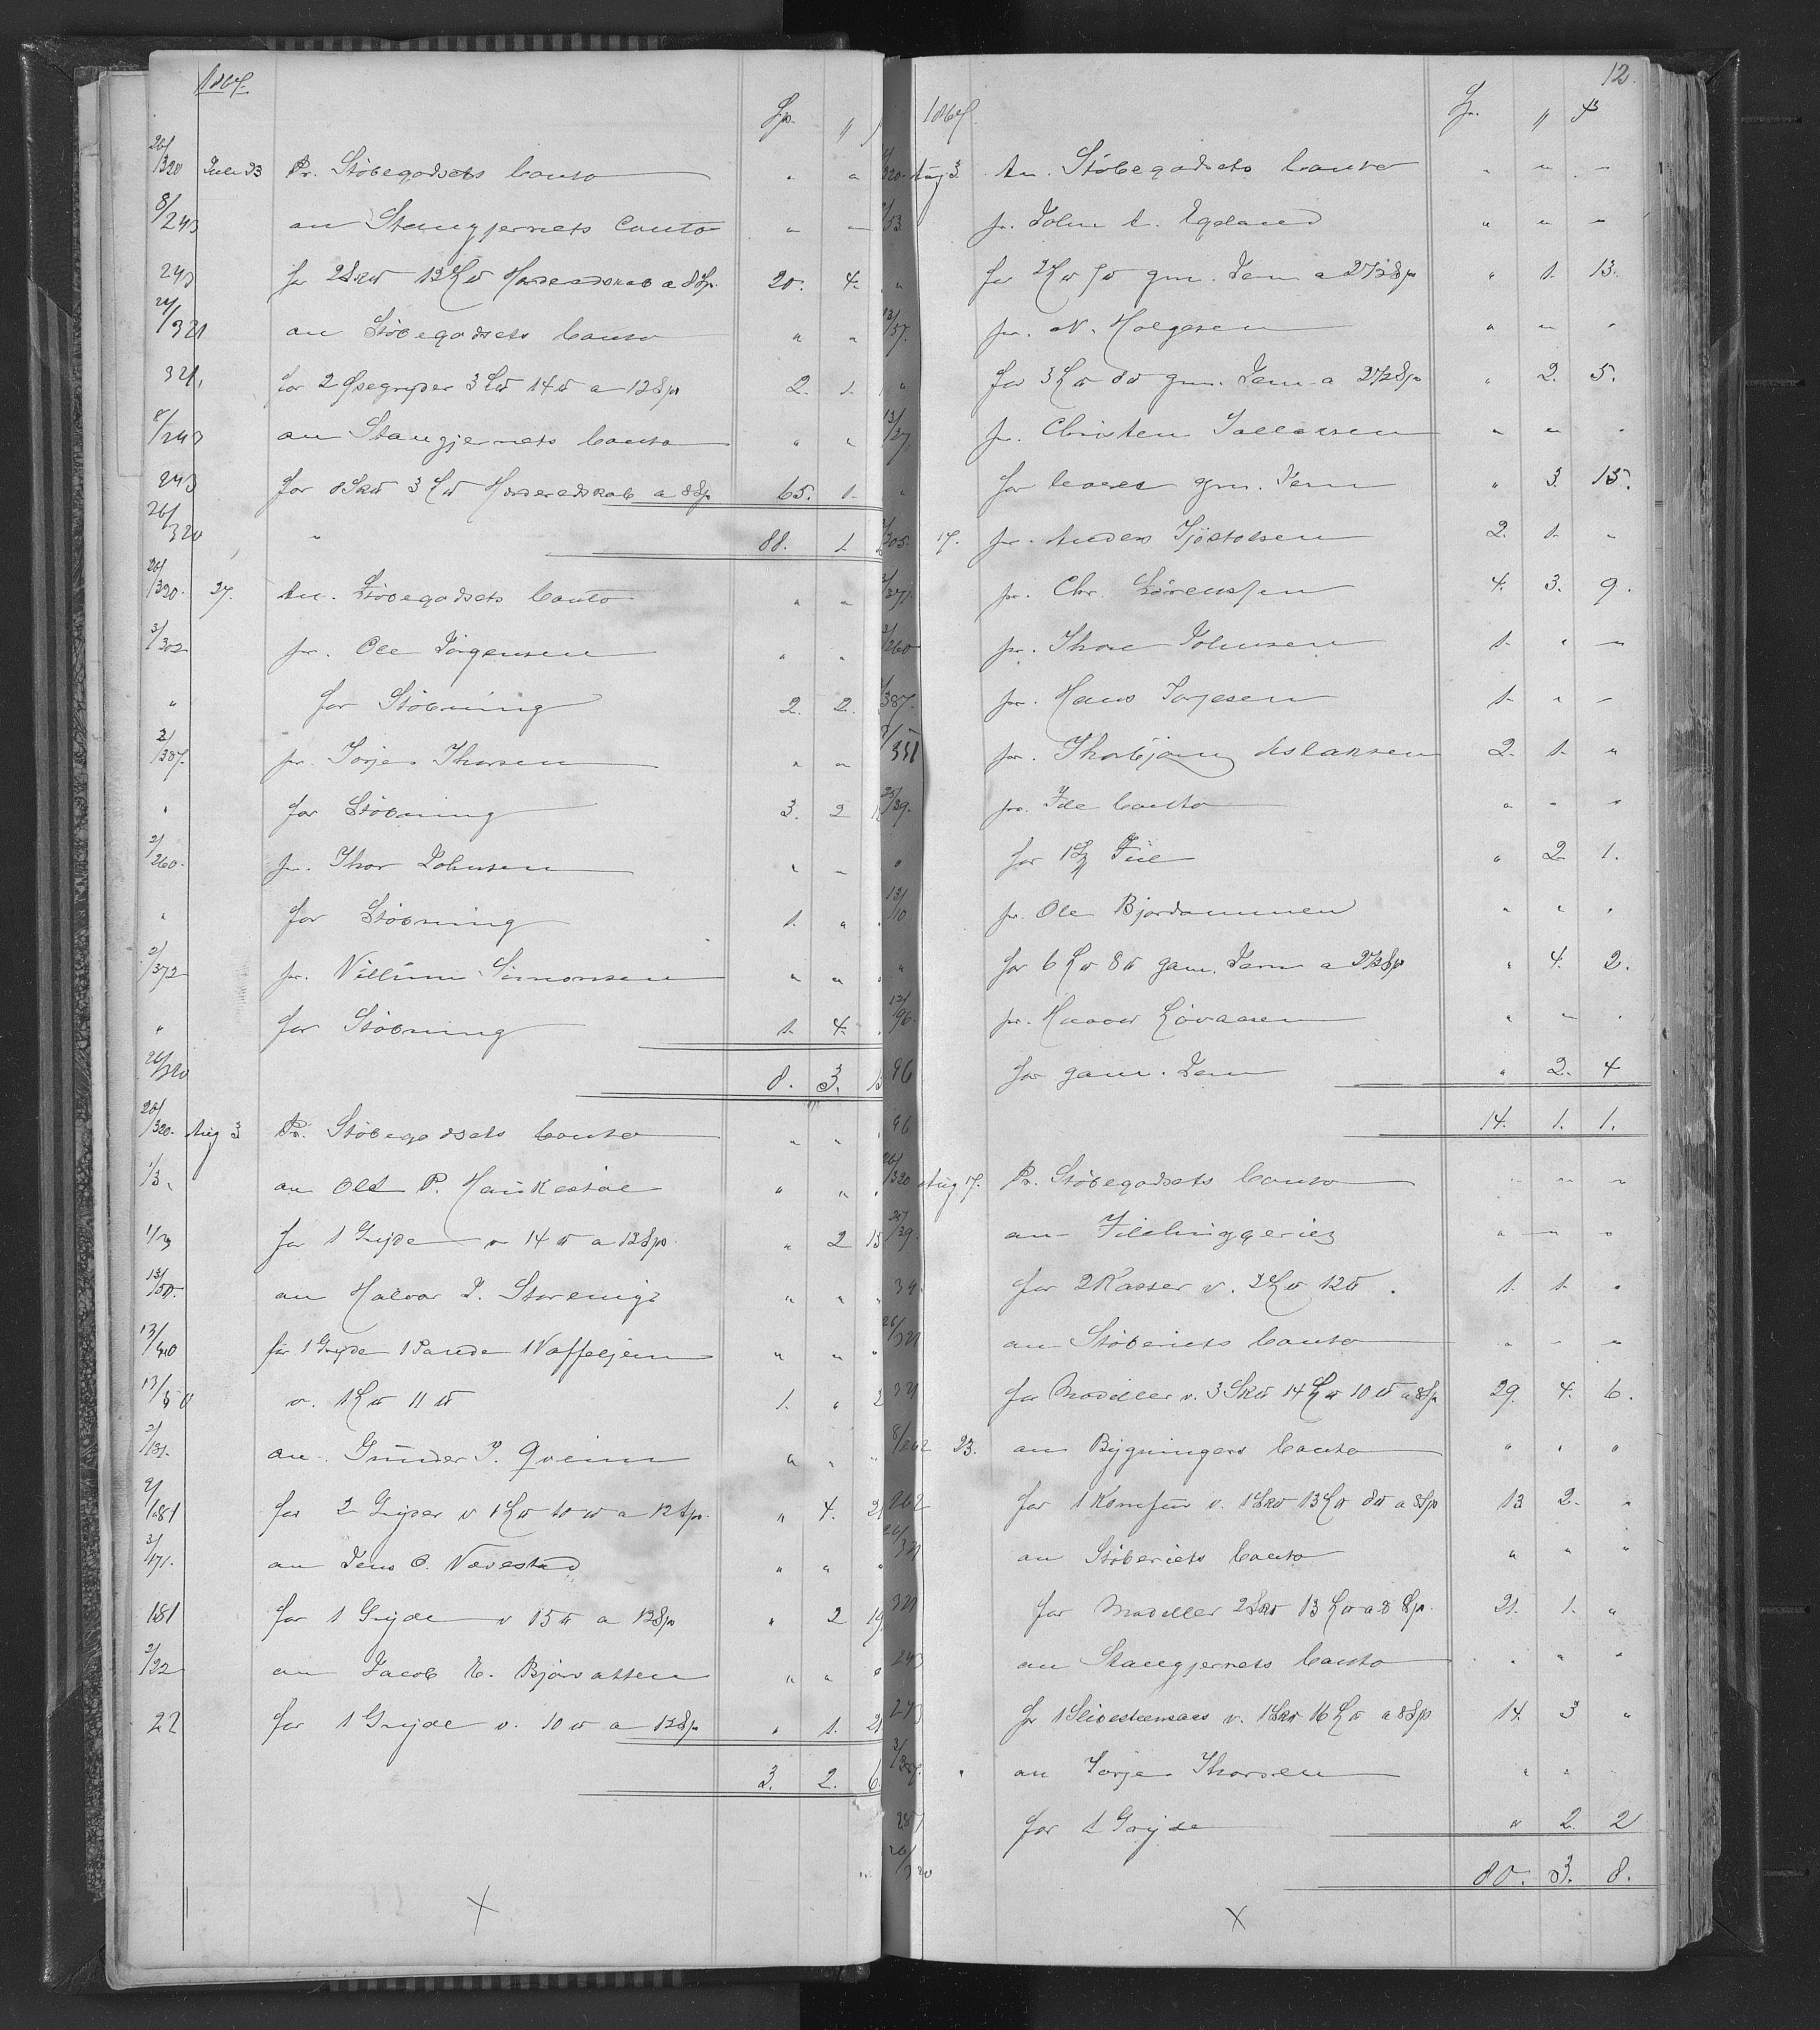 1867.
Sp. "
26/320 Juli 23 Pr. Støbegodsets Conto " "
8/243 an Stangjernets Conto " "
243 for 2Sk℔ 13L℔ Masseredskab a 8Sp. 20. 4.
26/321 an Støbegodsets Conto " "
321. for 2 Øsegryder 3L℔ 14℔ a 12Sp 2. 1.
8/243 an Stangjernets Conto " "
243 for 8Sk℔ 3L℔ a 8Sp 65. 1.
26/320 " 88. 1.
26/320. 27. An. Støbegodsets Conto " "
3/302 pr. Ole Jörgensen " "
" for Støbning 2. 2.
2/387. pr. Torje Thorsen " "
" for Støbning 3. 2
2/260. pr. Thor Johnsen " "
" for Støbning 1. "
2/372 pr. Villum Simonsen " "
" for Støbning 1. 4.
26/320 8. 3.
26/320. Aug 3 Pr. Støbegodsets Conto " "
1/3. an Ole P. Haukestöl " "
1/3 for 1 Gryde v 14℔ a 12Sp. " 2
13/50. an Halvor J. " "
13/50 for 1 Gryde 1 Pande 1 Vaffeljern " "
13/50 v. 1L℔ 11℔ 1. "
an Gunder T. Qveim " "
2/181 for 2 Gryder v 1L℔ 10℔ a 12Sp. " 4. 21
3/171. an Jens O. Vævestad " "
181 for 1 Gryde v 15℔ a 12Sp " 2 19.
2/22 an Jacob N. Bjørvatten " "
22 for 1 Gryde v. 10℔ a 12Sp " 1. 21
3. 2. 6.
X
12.
1867. Sp. " ß
320. Aug 3. An. Støbegodsets Conto " " "
53 pr. John A. Egeland " " "
" for 2L℔ 7℔ gm. Jern a 27½Sp " 1. 13.
13/57. pr. N. Holgesen " " "
" for 3L℔ 8℔ gm. Jern a 27½Sp " 2. 5.
13/27 pr. Christen Tallaksen " " "
" for leveret gm. Jern " 3. 15.
305. 17. pr. Anders Tjöstolsen 2. 1. "
pr. Chr. Sörenssen 4. 3. 9.
2/260 pr. Thor Johnsen 1. " "
387. pr. Hans Torjesen 1. " "
351 pr. Thorbjörn Aslaksen 2. 1. "
25/39. pr. File Conto " " "
" for 1 File " 2 1.
13/10 pr. Ole Bjordammen " " "
" for 6L℔ 8℔ gam. Jern a 27½Sp " 4. 2.
12/96. pr. Halvor Lövaasen " " "
96 for gam. Jern " 2. 4
96 14. 1. 1.
26/320 Aug 17. Pr. Støbegodsets Conto " " "
25/39. an Filehuggeriet " " "
39. for 2 Kasser v. 2L℔ 12℔. 1. 1. "
26/321 an Støberiets Conto " " "
321 for Modeller v. 3Sk℔ 14L℔ 10℔ a 8Sp 29. 4. 6.
8/262 23. an Bygningers Conto " " "
262 for 1 Komfur v. 1Sk℔ 13L℔ 8℔ a 8Sp 13 2. "
26/321 an Støberiets Conto " " "
321 for Modeller 2Sk℔ 13L℔ a 8 Sp. 21. 1. "
243 an Stangjernets Conto " " "
243 for 1 v. 1Sk℔ 16L℔ a 8Sp 14. 3 "
3/387. " an Torje Thorsen " "
387 for 1 Gryde " 2. 2
26/320 80. 3. 8.
X